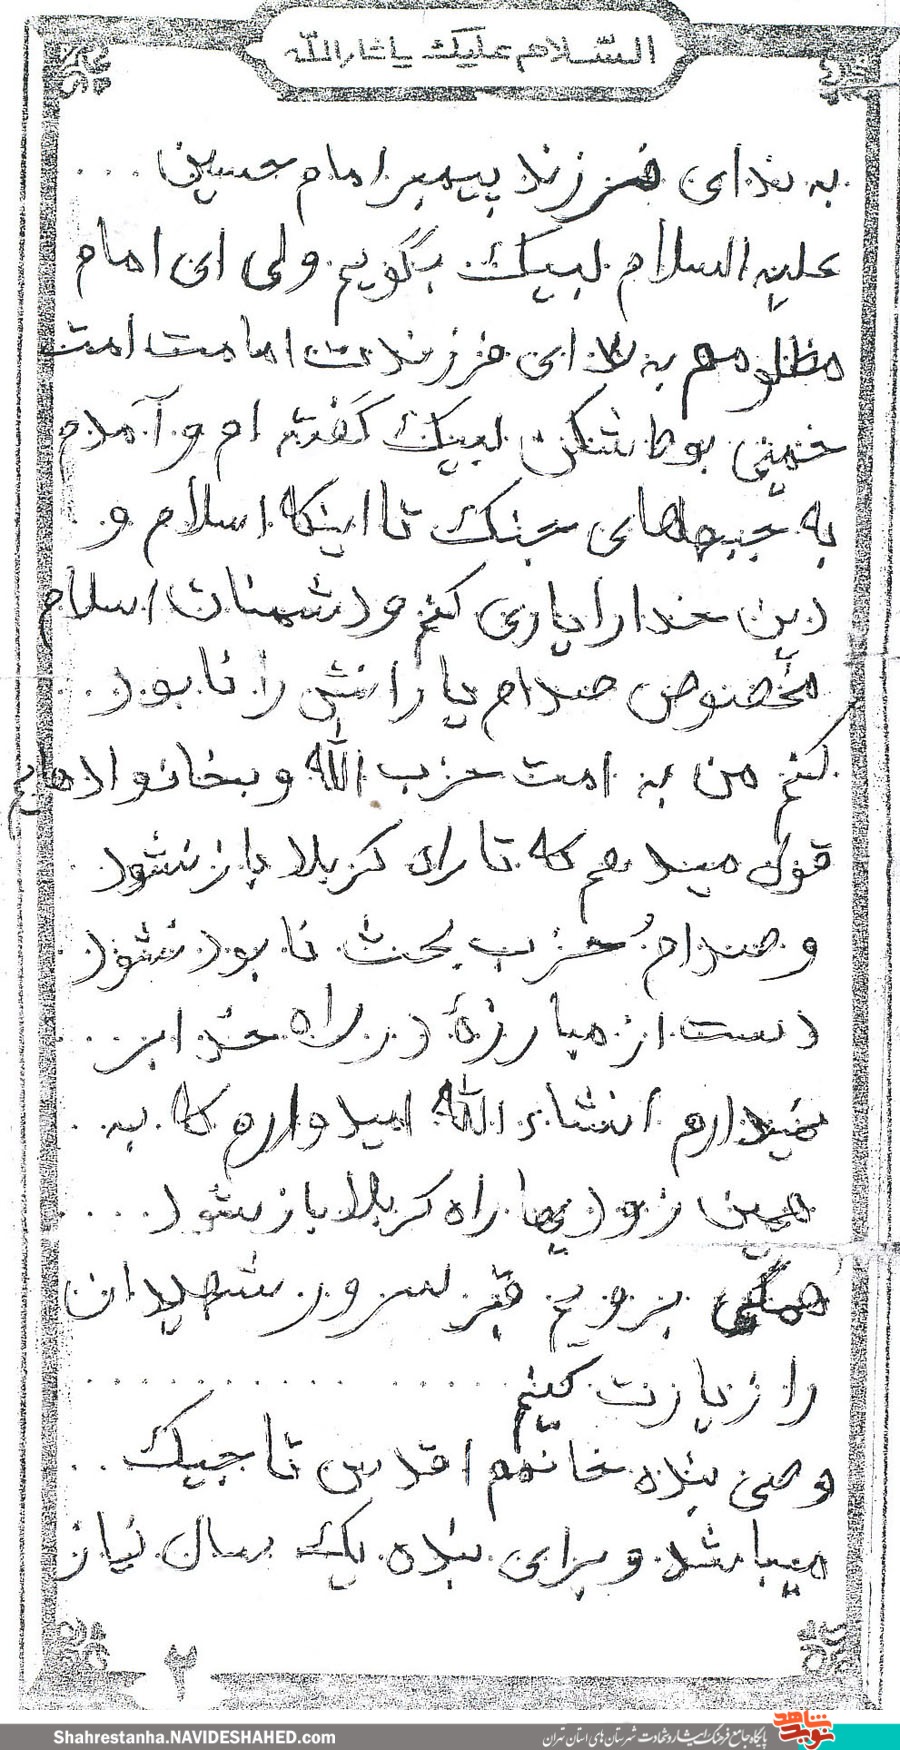 السّلام علیک یا ثارالله
به ندای فرزند پیمبر امام حسین ...
علیه السلام لبیک بگویم ولی ای امام
مظلومم به ندای فرزندت امامت امت
خمینی بوطاشکن لبیک گفته ام و آمدم
به جبهای جنگ تا اینکه اسلام و
دین خدا را یاری کنم و دشمنان اسلام
مخصوص صدام یارانش را نابود ..
کنم من به امت حزب الله و بخانوادهایم
قول میدهم که تا راه کربلا باز نشود
و صدام حزب بحث نابود نشود
دست از مبارزهٔ در راه خدا بر ...
نمیدارم انشاء الله امیدوارم که به ..
همین زودیها راه کربلا باز شود ....
همگی برویم قبر سرور شهیدان
را زیارت کنیم ..........
وصی بنده خانمم اقدس تاجیک ...
میباشد و برای بنده یک سال نیاز
۲
Shahrestanha.NAVIDESHAHED.com
پایگاه جامع فرهنگ ایثار و شهادت شهرستان های استان تهران
نوید شاهد